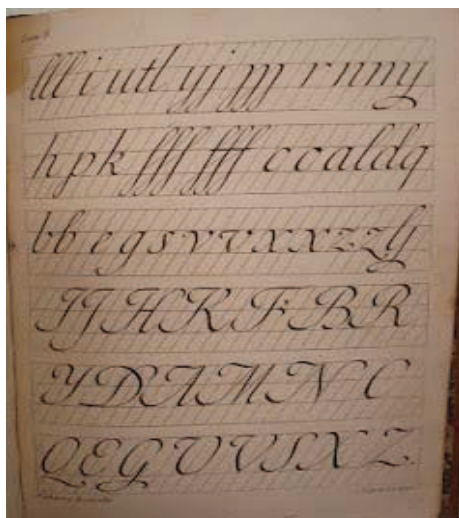 lll i u t l y j ſſſ r n m y
h p k ſſſ fff c c a l d q
bb e g s v v x x z z
I J H K F B R
Y D A M N C
Q E G U V S X Z